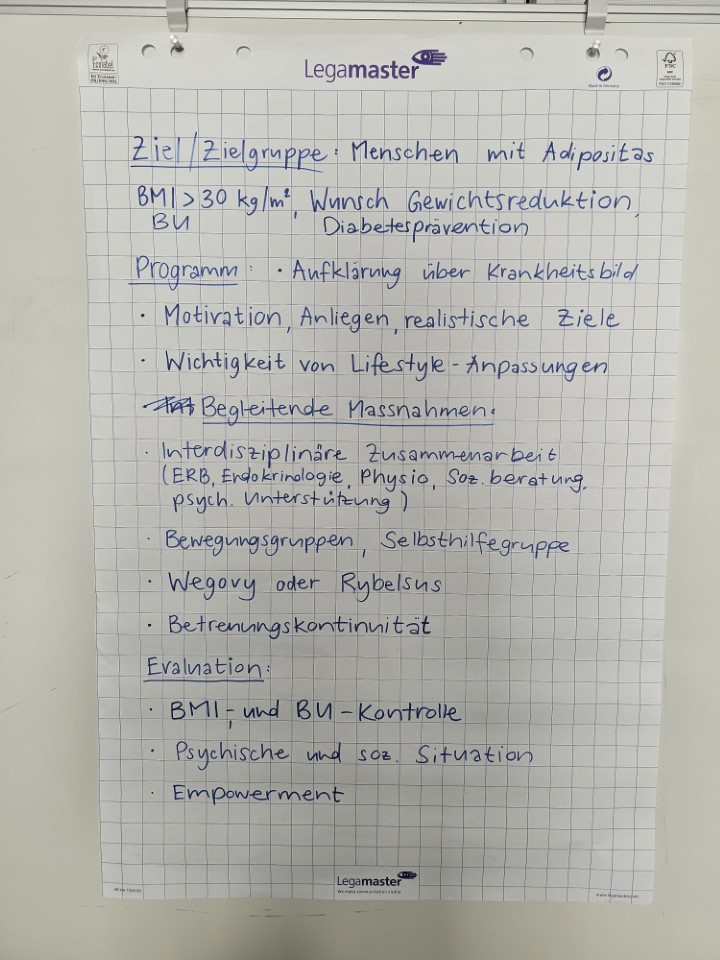 Legamaster
Made in Germany
FSC
Ziel/Zielgruppe: Menschen mit Adipositas
BMI > 30 kg/m², Wunsch Gewichtsreduktion,
BU Diabetesprävention
Programm: · Aufklärung über Krankheitsbild
· Motivation, Anliegen, realistische Ziele
· Wichtigkeit von Lifestyle-Anpassungen
Begleitende Massnahmen:
· Interdisziplinäre Zusammenarbeit
(ERB, Endokrinologie, Physio, Soz. beratung,
psych. Unterstützung)
· Bewegungsgruppen, Selbsthilfegruppe
· Wegovy oder Rybelsus
· Betreuungskontinuität
Evaluation:
· BMI-, und BU-Kontrolle
· Psychische und soz. Situation
· Empowerment
Legamaster